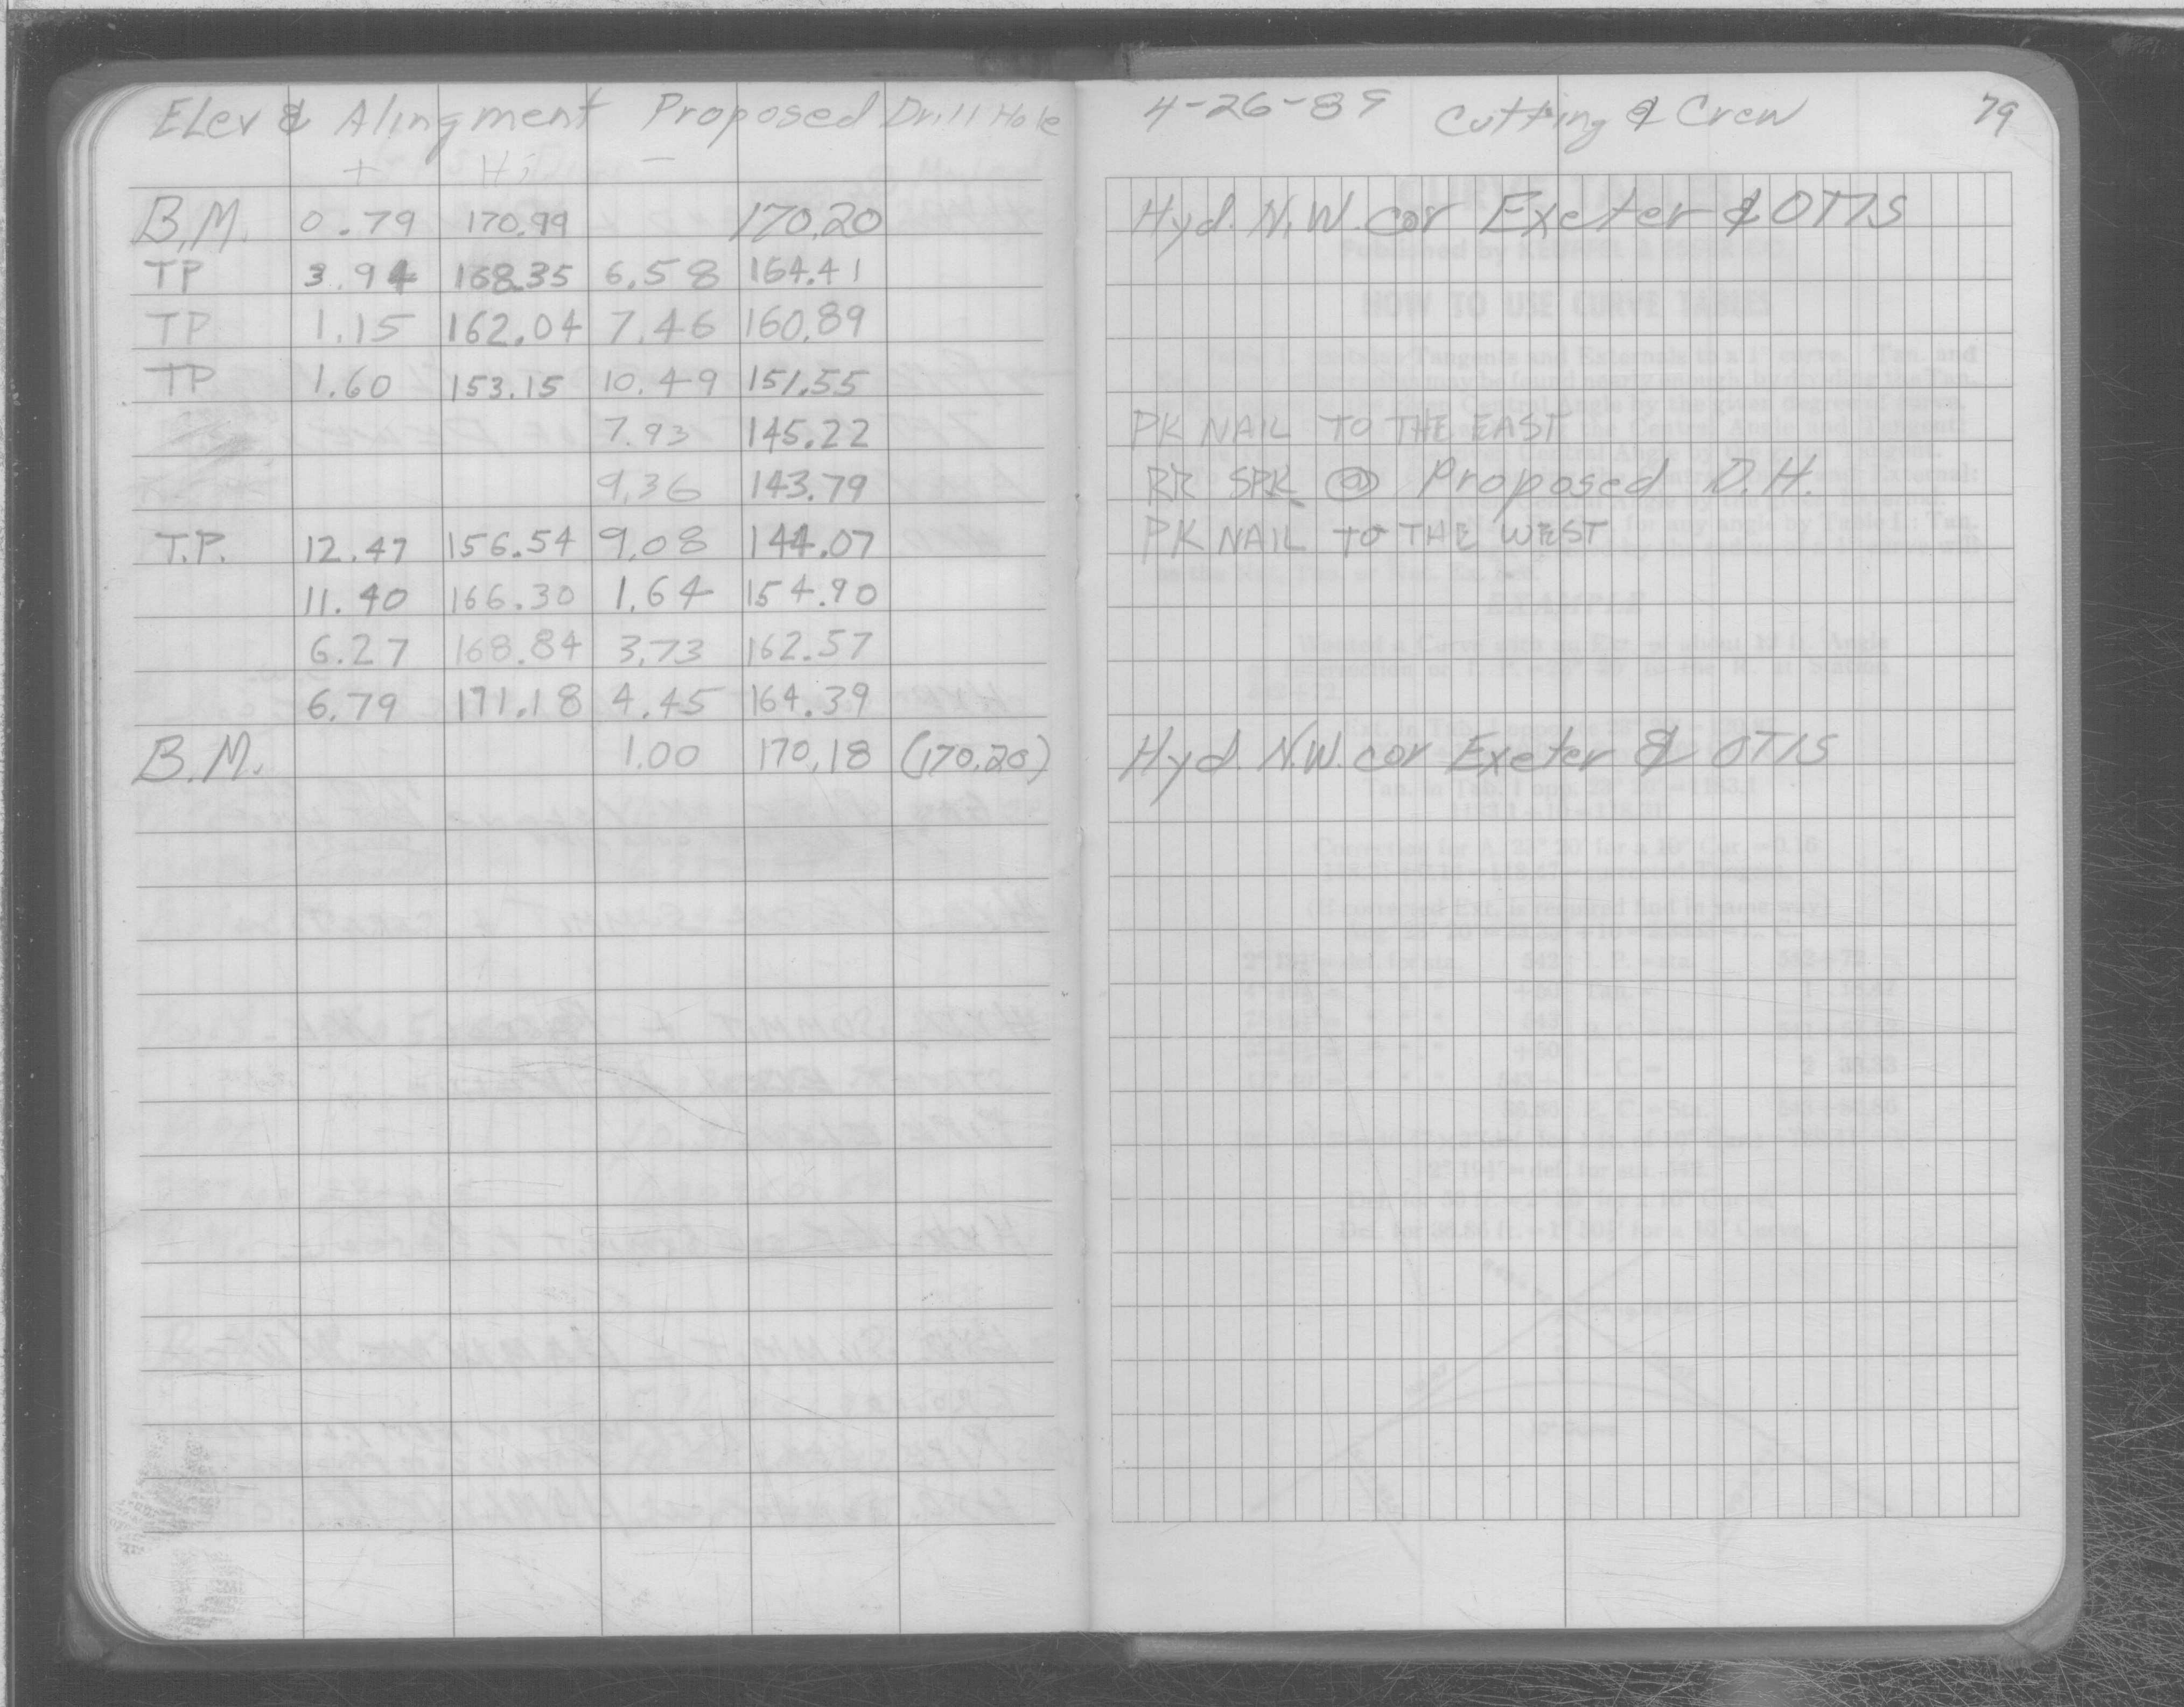 Elev & Alingment Proposed Drill Hole
+ H.I. -
B.M. 0.79 170.99 170.20
TP 3.94 168.35 6.58 164.41
TP 1.15 162.04 7.46 160.89
TP 1.60 153.15 10.49 151.55
7.93 145.22
9.36 143.79
T.P. 12.47 156.54 9.08 144.07
11.40 166.30 1.64 154.90
6.27 168.84 3.73 162.57
6.79 171.18 4.45 164.39
B.M. 1.00 170.18 (170.20)
4-26-89 Cutting & Crew 79
Hyd. N.W. cor Exeter & OTIS
PK NAIL TO THE EAST
RR SPK @ Proposed D.H.
PK NAIL TO THE WEST
Hyd. N.W. cor Exeter & OTIS